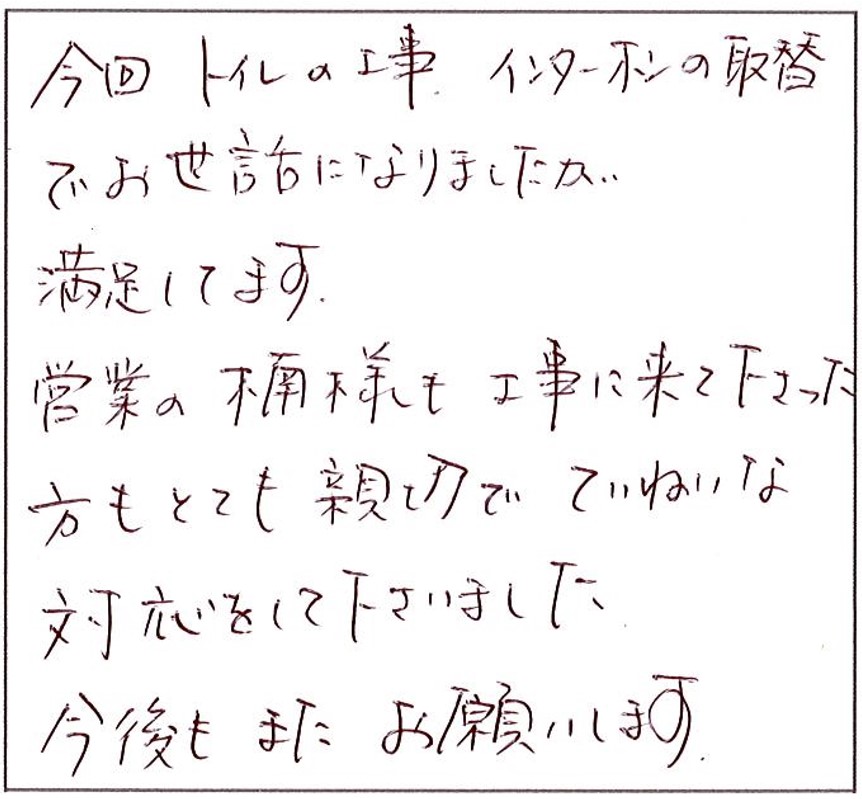 今回 トイレの工事. インターホンの取替
でお世話になりましたが..
満足してます.
営業の 楠様も 工事に来て下さった
方もとても 親切で ていねいな
対応をして下さいました.
今後も また お願いします.